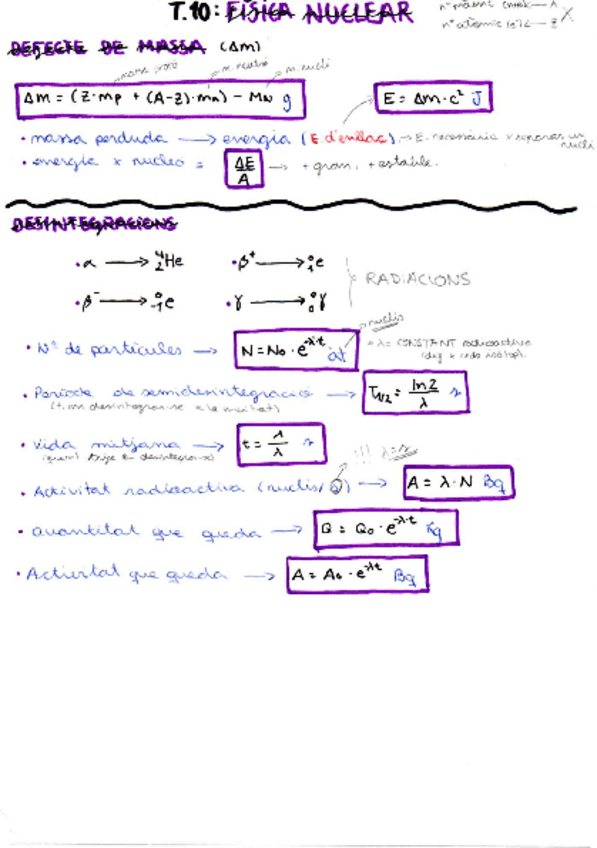 T.10: FÍSICA NUCLEAR
nº màssic A
nº atòmic Z X
DEFECTE DE MASSA (Δm)
massa protó m. neutró m. nucli
Δm = (Z·mp + (A-Z)·mn) - MN g
E = Δm·c² J
• massa perduda → energia (E d'enllaç) → E. necessària x separar un nucli
• energia x nucleo = ΔE/A → + gran, + estable.
DESINTEGRACIONS
• α → ⁴₂He • β⁺ → ⁰₁e
• β⁻ → ⁰₋₁e • γ → ⁰₀γ
RADIACIONS
nuclis
• Nº de partícules → N = No · e^-λ·t at
* λ = CONSTANT radioactiva
• Període de semidesintegració → T1/2 = ln2/λ s
• Vida mitjana → t = 1/λ s
!!! λ=s
• Activitat radioactiva (nuclis/s) → A = λ·N Bq
• Quantitat que queda → Q = Qo · e^-λ·t Kg
• Activitat que queda → A = Ao · e^-λt Bq